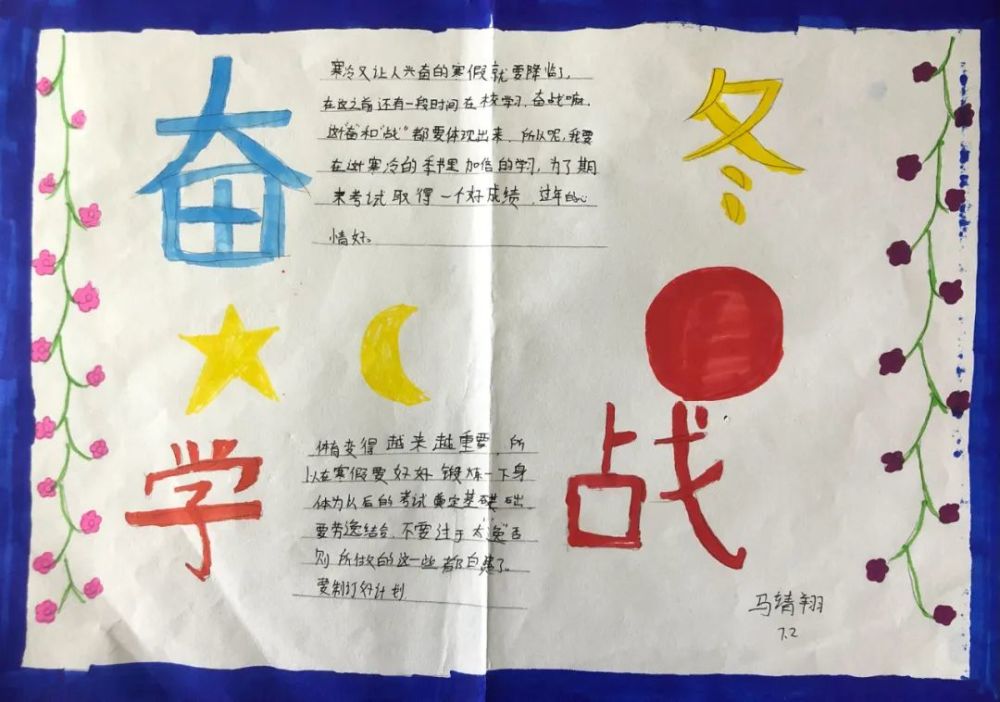 奋
寒冷又让人兴奋的寒假就要降临了,
在这之前还有一段时间在校学习,奋战嘛,
这"奋"和"战"都要体现出来,所以呢,我要
在这寒冷的季节里加倍的学习,为了期
末考试取得一个好成绩,过年的心
情好。
冬
学
体育变得越来越重要,所
以在寒假要好好锻炼一下身
体为以后的考试奠定基础
要劳逸结合,不要过于太"逸"否
则所做的这一些都白费了。
要制订好计划
战
马靖翔
7.2